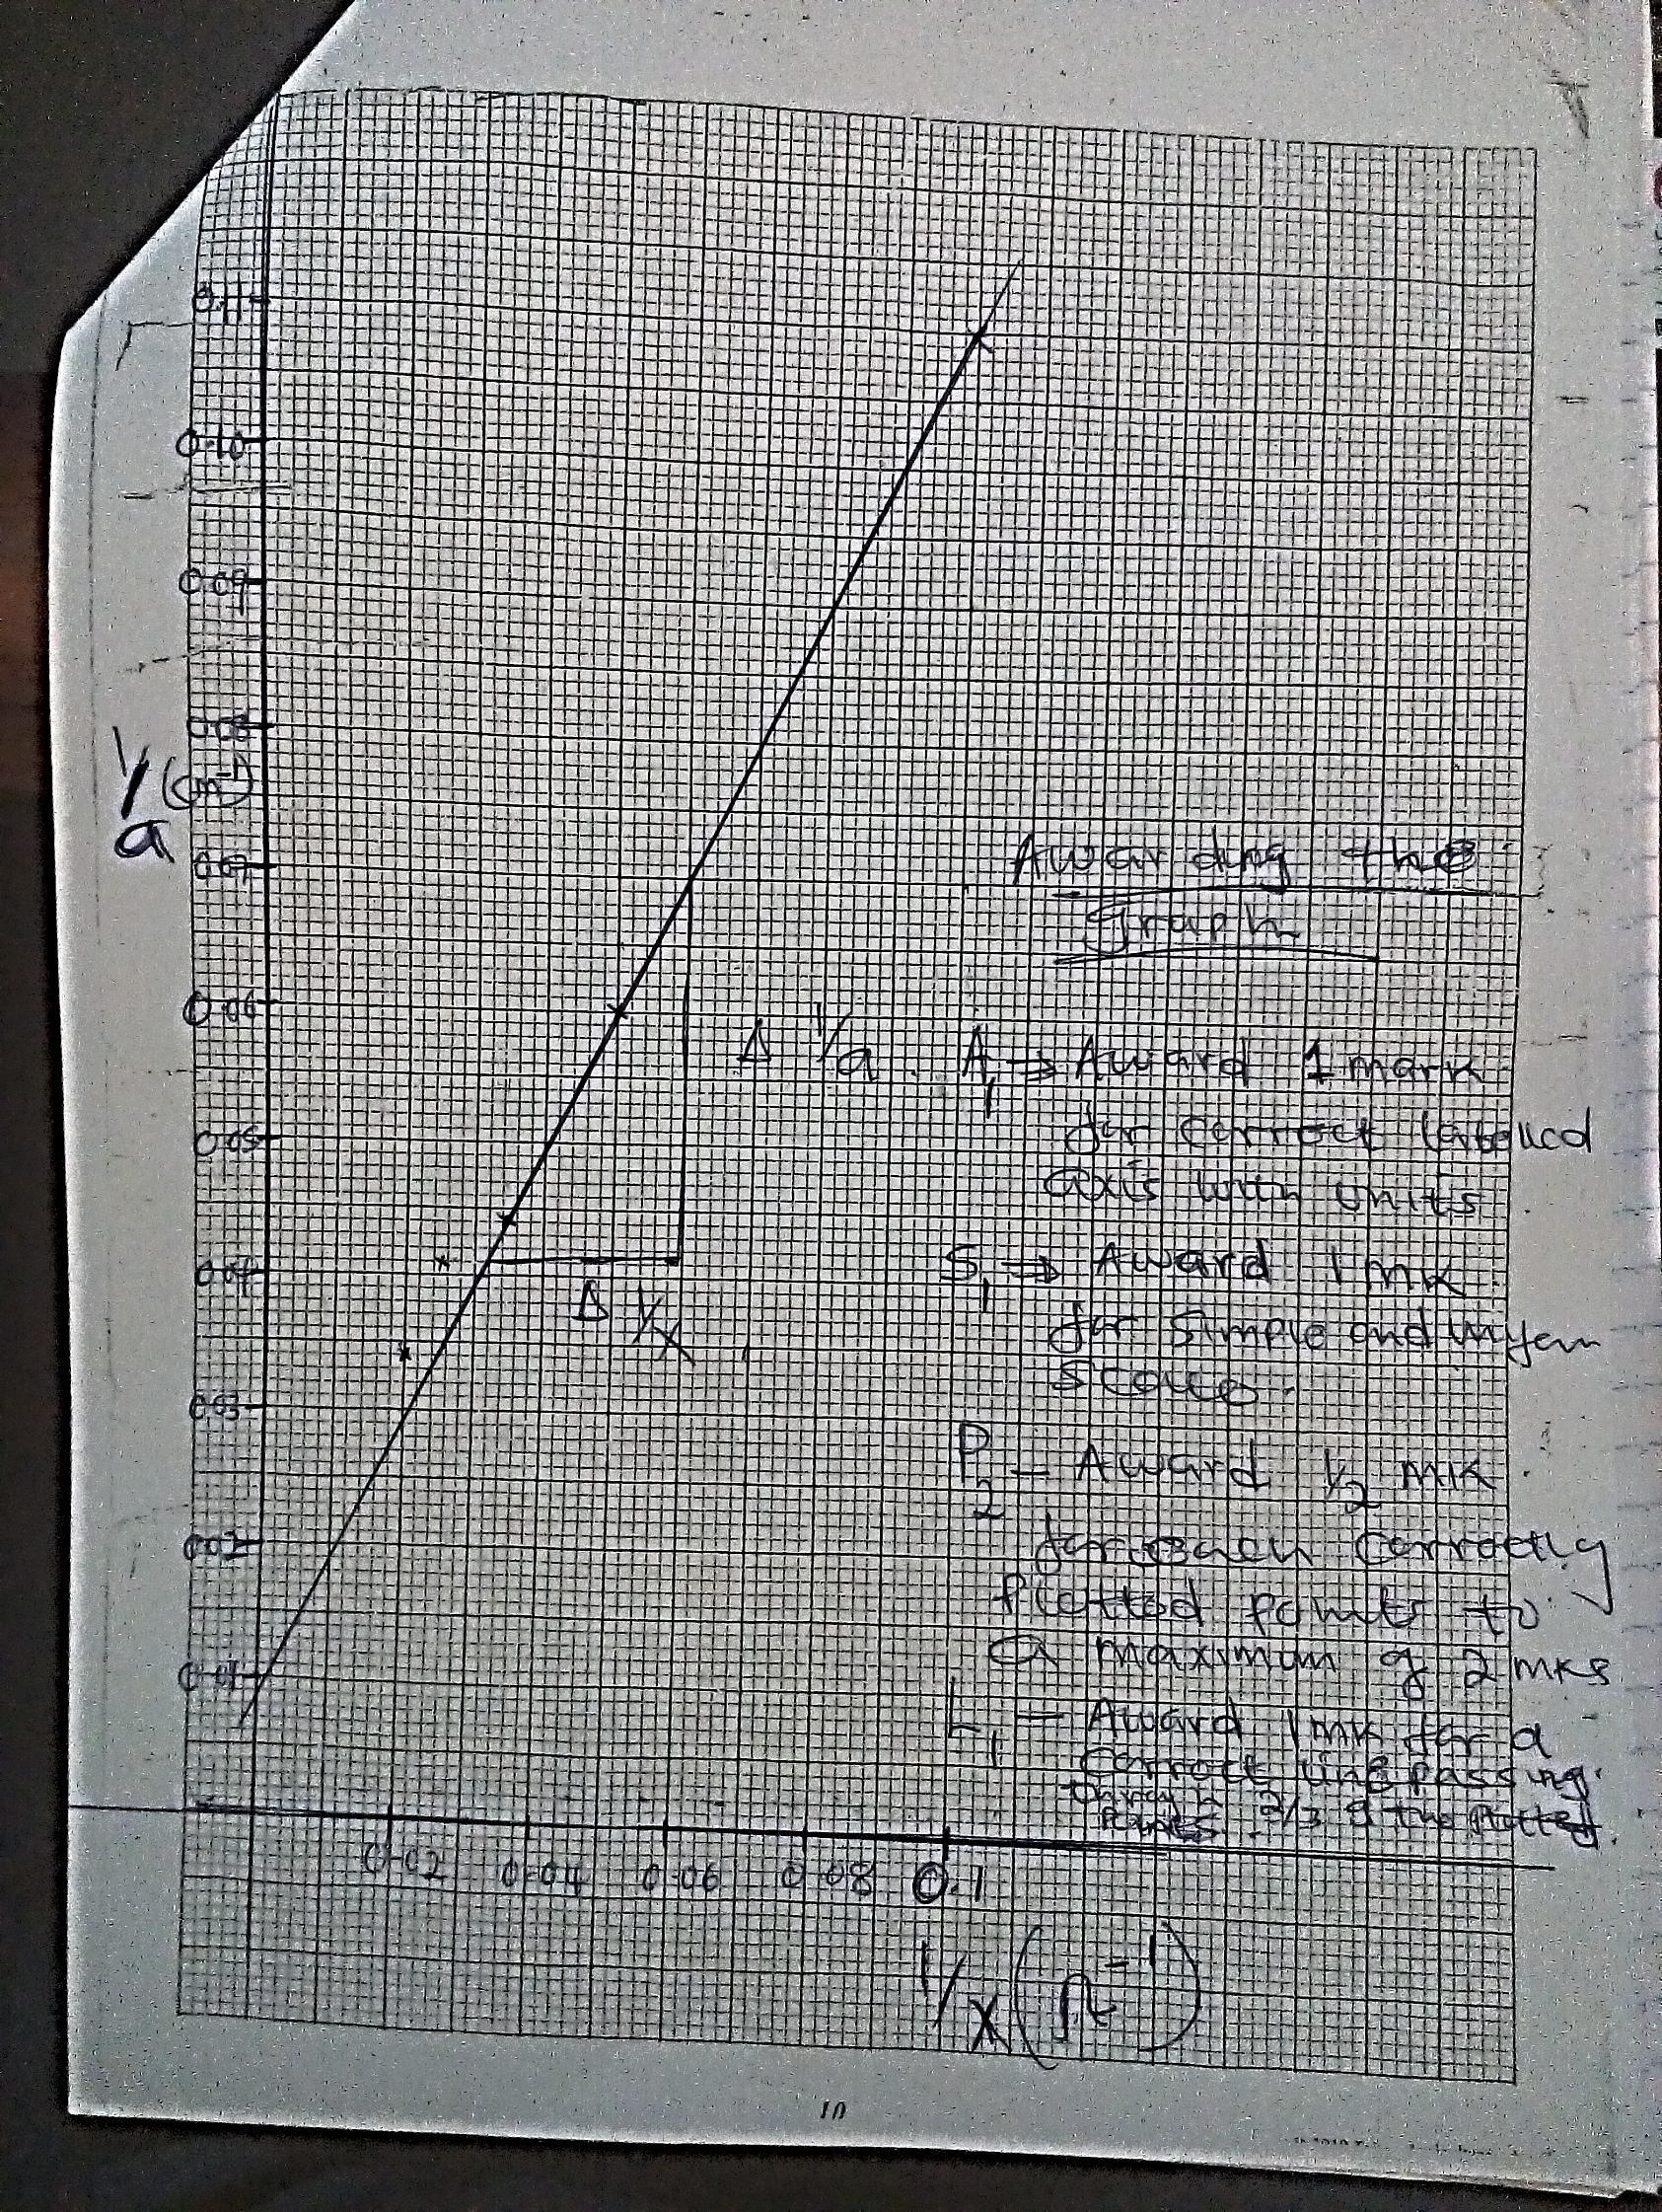 0.11
0.10
0.09
0.08
1/a (cm⁻¹)
0.07
0.06
0.05
0.04
0.03
0.02
0.01
Δ 1/a
Δ 1/x
Awarding the
graph
A1 → Award 1 mark
for correct labelled
axis with units
S1 → Award 1 mk
for simple and uniform
scales.
P2 – Award ½ mk
for each correctly
plotted points to
a maximum of 2 mks
L1 – Award 1 mk for a
correct line passing
through 2/3 of the plotted.
points
0.02 0.04 0.06 0.08 0.1
1/x (Ω⁻¹)
10